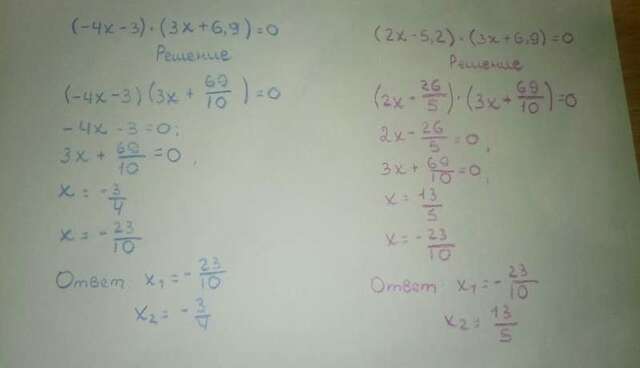 (-4x-3)·(3x+6,9)=0
Решение
(-4x-3)(3x+69/10)=0
-4x-3=0;
3x+69/10=0,
x=-3/4
x=-23/10
Ответ: x₁=-23/10
x₂=-3/4
(2x-5,2)·(3x+6,9)=0
Решение
(2x-26/5)·(3x+69/10)=0
2x-26/5=0,
3x+69/10=0,
x=13/5
x=-23/10
Ответ: x₁=-23/10
x₂=13/5